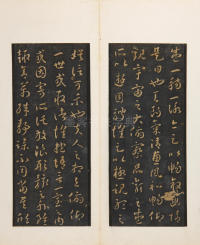 盛一觴一詠亦足以暢敘幽情
是日也天朗氣清惠風和暢仰
觀宇宙之大俯察品類之盛
所以遊目騁懷足以極視聽之
娛信可樂也夫人之相與俯仰
一世或取諸懷抱悟言一室之內
或因寄所託放浪形骸之外雖
趣舍萬殊靜躁不同當其欣